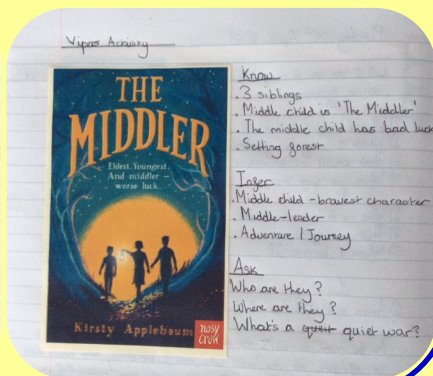 Vipers Activity
THE
MIDDLER
Eldest. Youngest.
And middler –
worse luck.
Kirsty Applebaum
nosy
crow
Know
. 3 siblings
. Middle child is 'The Middler'
. The middle child has bad luck
. Setting forest
Infer
. Middle child - bravest character
. Middle - leader
. Adventure / Journey
Ask
Who are they?
Where are they?
What's a quiet war?